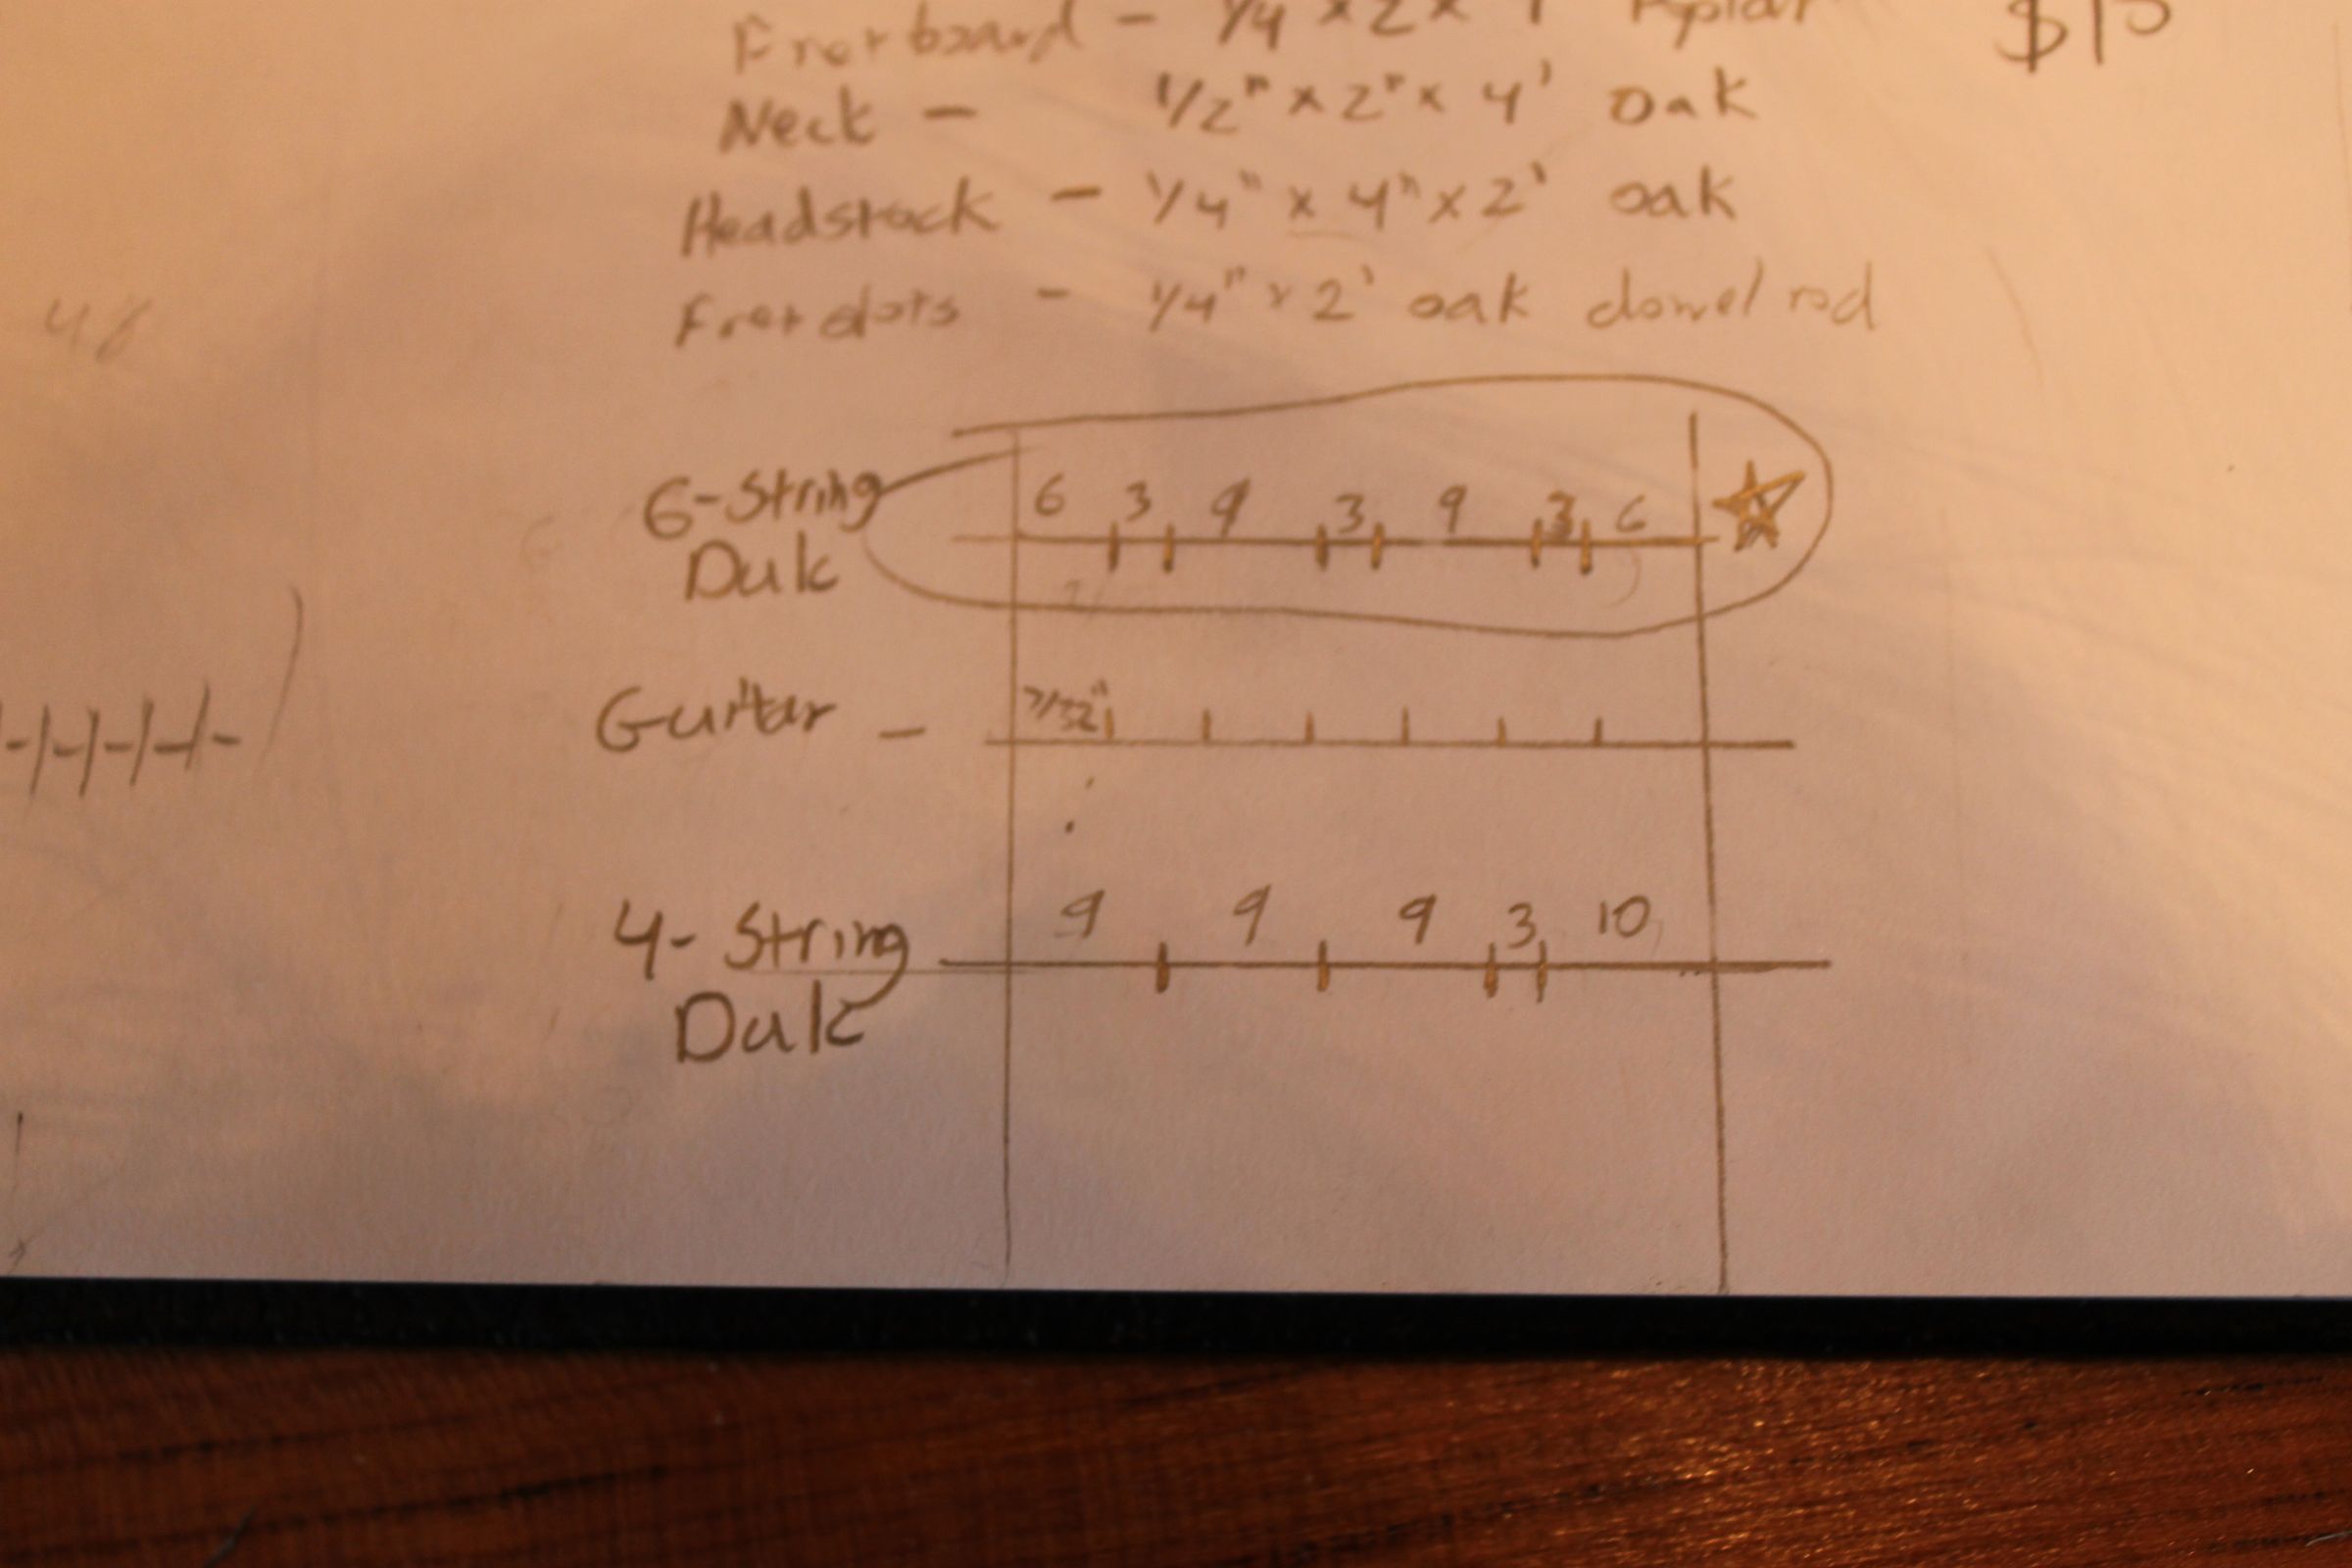 Fretboard - 1/4 x 2 x $15
Neck - 1/2" x 2" x 4' oak
Headstock - 1/4" x 4" x 2' oak
Fret dots - 1/4" x 2' oak dowel rod
48
6-String
Dulc
6 3 9 3 9 3 6
Guitar - 7/32"
4-String
Dulc
9 9 9 3 10